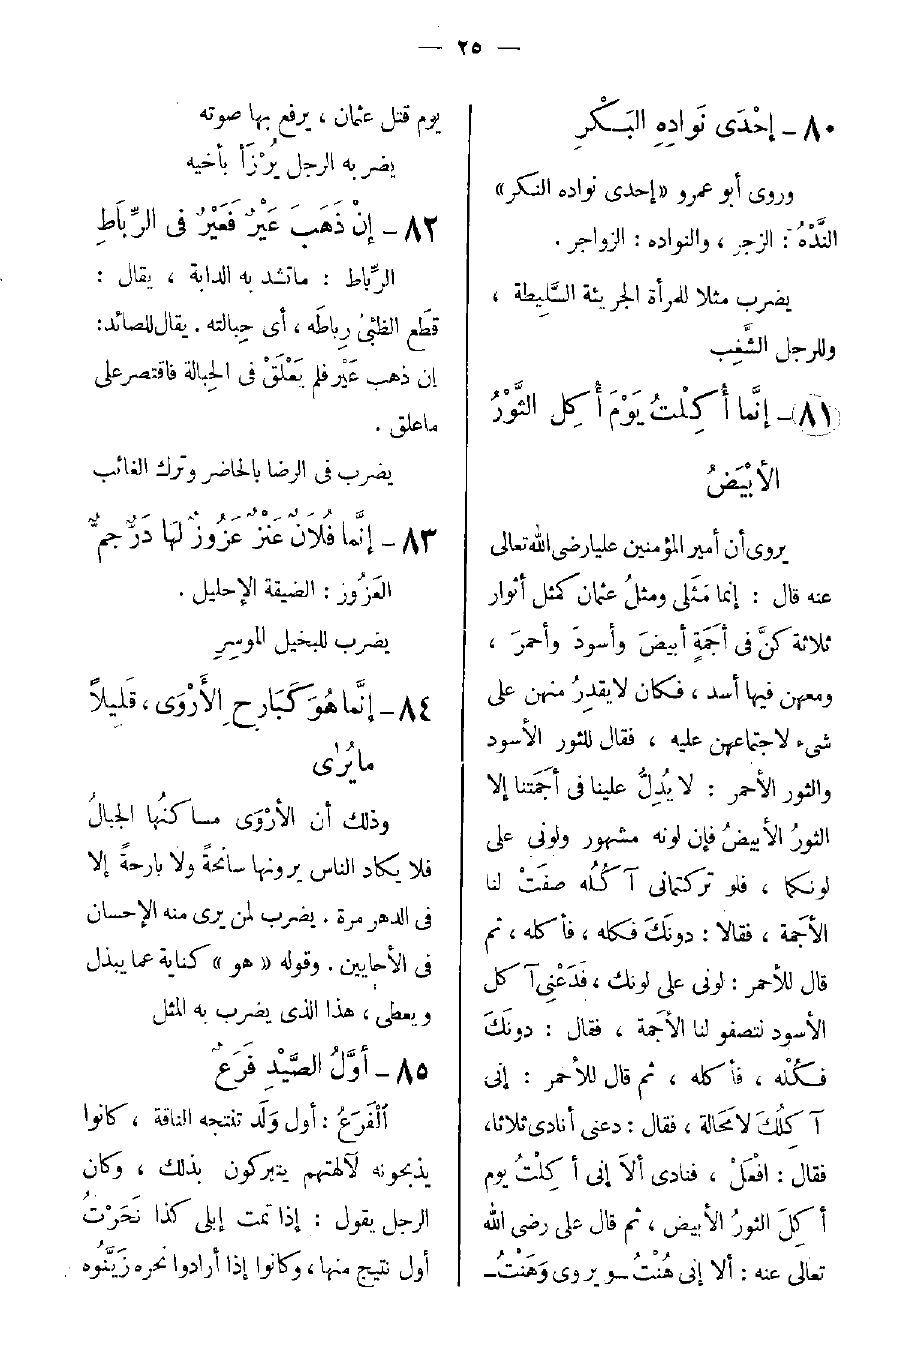 — ٢٥ —
٨٠ – إِحْدَى نَوادِهِ البَكْرِ
وروى أبو عمرو «إحدى نواده النكر»
النَّدْهُ : الزجر ، والنواده : الزواجر .
يضرب مثلا للمرأة الجريئة السَّلِيطة ،
وللرجل الشَّغِب
(٨١) – إنَّما أُكِلْتُ يَوْمَ أُكِلَ الثَّوْرُ
الأبْيَضُ
يروى أن أمير المؤمنين عليا رضى الله تعالى
عنه قال : إنما مَثَلى ومثلُ عثمان كمثل أثوار
ثلاثة كنَّ فى أجَمةٍ أبيضَ وأسودَ وأحمرَ ،
ومعهن فيها أسد ، فكان لا يقدِرُ منهن على
شىء لاجتماعهن عليه ، فقال للثور الأسود
والثور الأحمر : لا يُدِلُّ علينا فى أجَمَتنا إلا
الثورُ الأبيضُ فإن لونه مشهور ولونى على
لونكما ، فلو تركتمانى آكُلُه صفَتْ لنا
الأجمة ، فقالا : دونَكَ فكله ، فأكله ، ثم
قال للأحمر : لونى على لونك ، فَدَعْنِى آكل
الأسود لتصفو لنا الأجمة ، فقال : دونَكَ
فكُلْه ، فأكله ، ثم قال للأحمر : إنى
آكِلُكَ لا مَحَالة ، فقال : دعنى أنادى ثلاثا،
فقال : افْعَلْ ، فنادى ألاَ إنى أكِلْتُ يوم
أكِلَ الثورُ الأبيض ، ثم قال على رضى الله
تعالى عنه : ألا إنى هُنْتُ – ويروى وَهَنْتُ –
يوم قتل عثمان ، يرفع بها صوته
يضرب به الرجل يُرْزَأ بأخيه
٨٢ – إنْ ذَهَبَ عَيْرٌ فَعَيْرٌ فى الرِّبَاطِ
الرِّباط : ماتشد به الدابة ، يقال :
قطَع الظبْىُ رِباطَه ، أى حِبالته . يقال للصائد:
إن ذهب عَيْر فلم يَعْلَقْ فى الحِبالة فاقتصر على
ماعلق .
يضرب فى الرضا بالحاضر وترك الغائب
٨٣ – إنَّما فُلاَنٌ عَنْزٌ عَزُوزٌ لهَا دَرٌّ جَمٌّ
العَزُوز : الضيقة الإحليل .
يضرب للبخيل الموسِرِ
٨٤ – إنَّما هُوَ كَبَارِحِ الأَرْوَى ، قَلِيلاً
مايُرٰى
وذلك أن الأرْوَى مساكنُها الجبالُ
فلا يكاد الناس يرونها سانحةً ولا بارحةً إلا
فى الدهر مرة . يضرب لمن يرى منه الإحسان
فى الأحايين . وقوله « هو » كناية عما يبذل
ويعطى ، هذا الذى يضرب به المثل
٨٥ – أوَّلُ الصَّيْدِ فَرَعٌ
ألْفَرَعُ : أول وَلَد تنتجه الناقة ، كانوا
يذبحونه لآلهتهم يتبركون بذلك ، وكان
الرجل يقول : إذا تمت إبلى كذا نَحَرْتُ
أول نتيج منها ، وكانوا إذا أرادوا نحره زَيَّنُوه